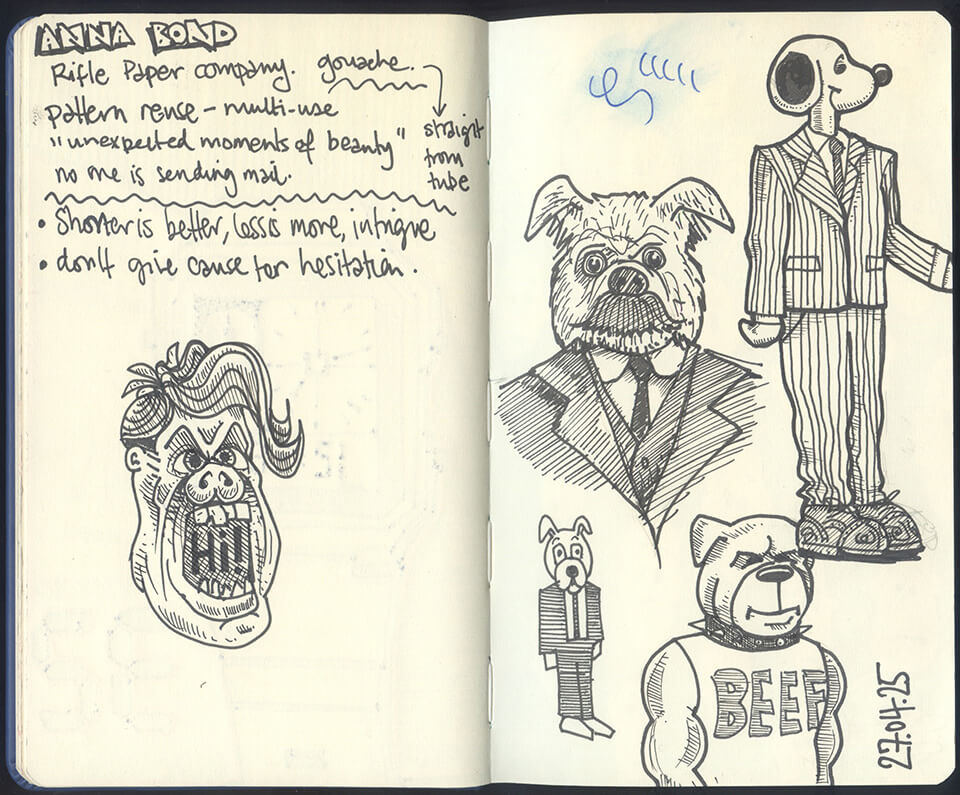 ANNA BOND
Rifle Paper company. gouache.
straight
from
tube
pattern reuse - multi-use
"unexpected moments of beauty"
no one is sending mail.
• Shorter is better, less is more, intrigue
• don't give cause for hesitation.
Hi!
BEEF
22.04.25